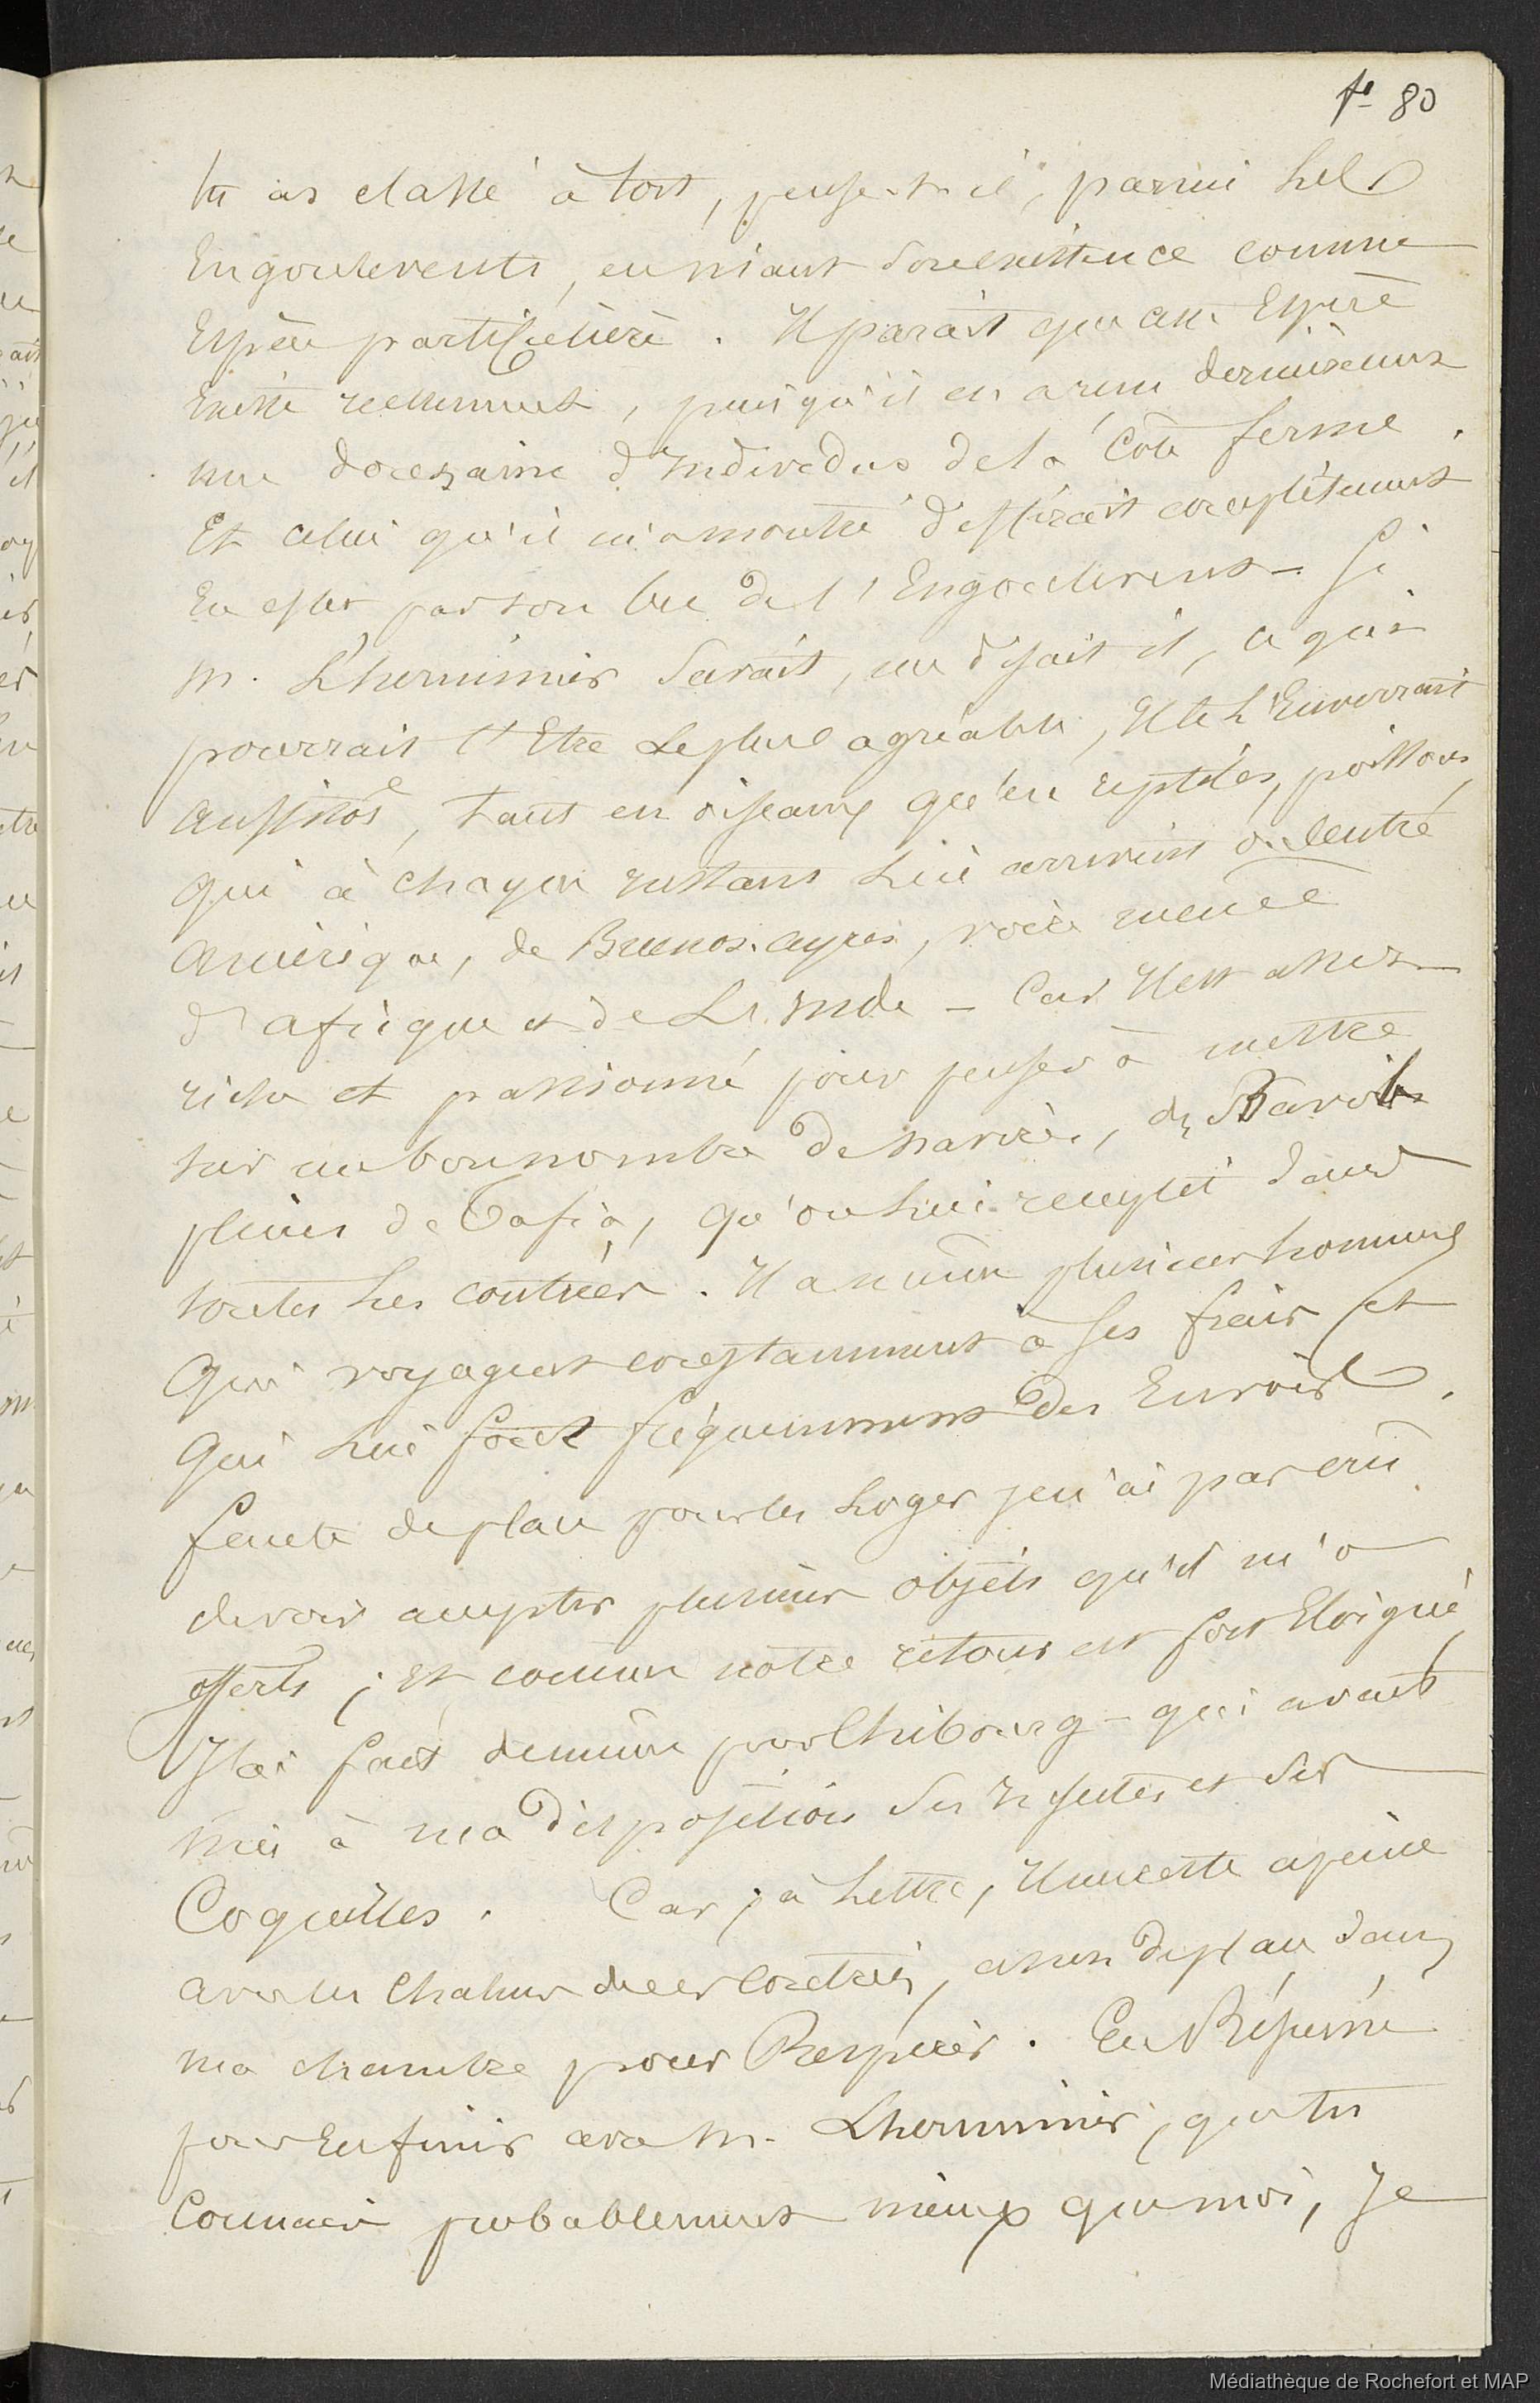 fo 80
tu as classé à tort, pense-t-il, parmi les
Engoulevents, en niant son existence comme
Espèce particulière. Il parait que cette Espece
Existe reellement, puisqu'il en a reçu dernièrement
une douzaine d'Individus de la Côte ferme.
Et celui qu'il m'a montré differait complètement
En effet par son bec de l'Engoulevent - Si
M. L'herminier Savait, me disait il, ce qui
pourrait t'Etre le plus agréable, Il te L'Enverrait
aussitôt, tant en oiseaux qu'en reptiles, poissons,
qui à chaque instant lui arrivent de l'entre
Amérique, de Buenos-ayres, voire même
d'afrique et de L'inde - Car Il est assez
riche et passionné pour penser à mettre
sur un bon nombre de navires, des Barils
pleins de Tafia, qu'on lui remplit dans
toutes les contrées. Il a même plusieurs hommes
qui voyagent constamment à ses frais et
qui lui font fréquemment des Envois.
faute de place pour les loger je n'ai pas crû
devoir accepter plusieurs objets qu'il m'a
offerts ; et comme notre retour est fort Eloigné,
J'ai fait de même pour Chibourg - qui avait
mis à ma disposition ses insectes et ses
Coquilles. Car, à la lettre, Il me reste a peine
avec les chaleurs de ces Contrées, assez de place dans
ma chambre pour Respirer. En Résumé
pour En finir avec M. Lherminier, que tu
Connais probablement mieux que moi, Je
Médiathèque de Rochefort et MAP